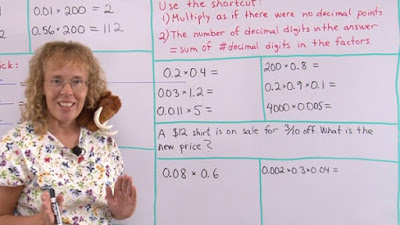 0.01 × 200 = 2
0.56 × 200 = 112
Use the shortcut:
1) Multiply as if there were no decimal points
2) The number of decimal digits in the answer
= sum of # decimal digits in the factors.
0.2 × 0.4 =
0.03 × 1.2 =
0.011 × 5 =
200 × 0.8 =
0.2 × 0.9 × 0.1 =
4000 × 0.005 =
A $12 shirt is on sale for 3/10 off. What is the
new price?
0.08 × 0.6
0.002 × 0.3 × 0.04 =